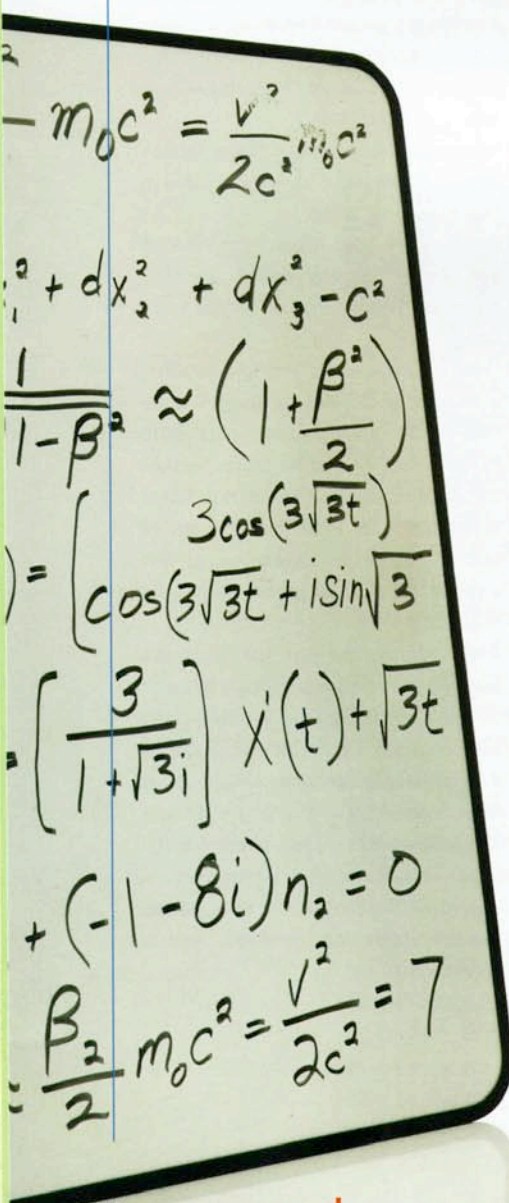 2
− m₀c² = v²/2c² m₀c²
₁² + dx₂² + dx₃² − c²
1/√1−β² ≈ (1 + β²/2)
) = [3cos(3√3t)
cos(3√3t + isin√3
= [3/1+√3i] X'(t) + √3t
+ (−1 − 8i)n₂ = 0
= β₂/2 m₀c² = v²/2c² = 7